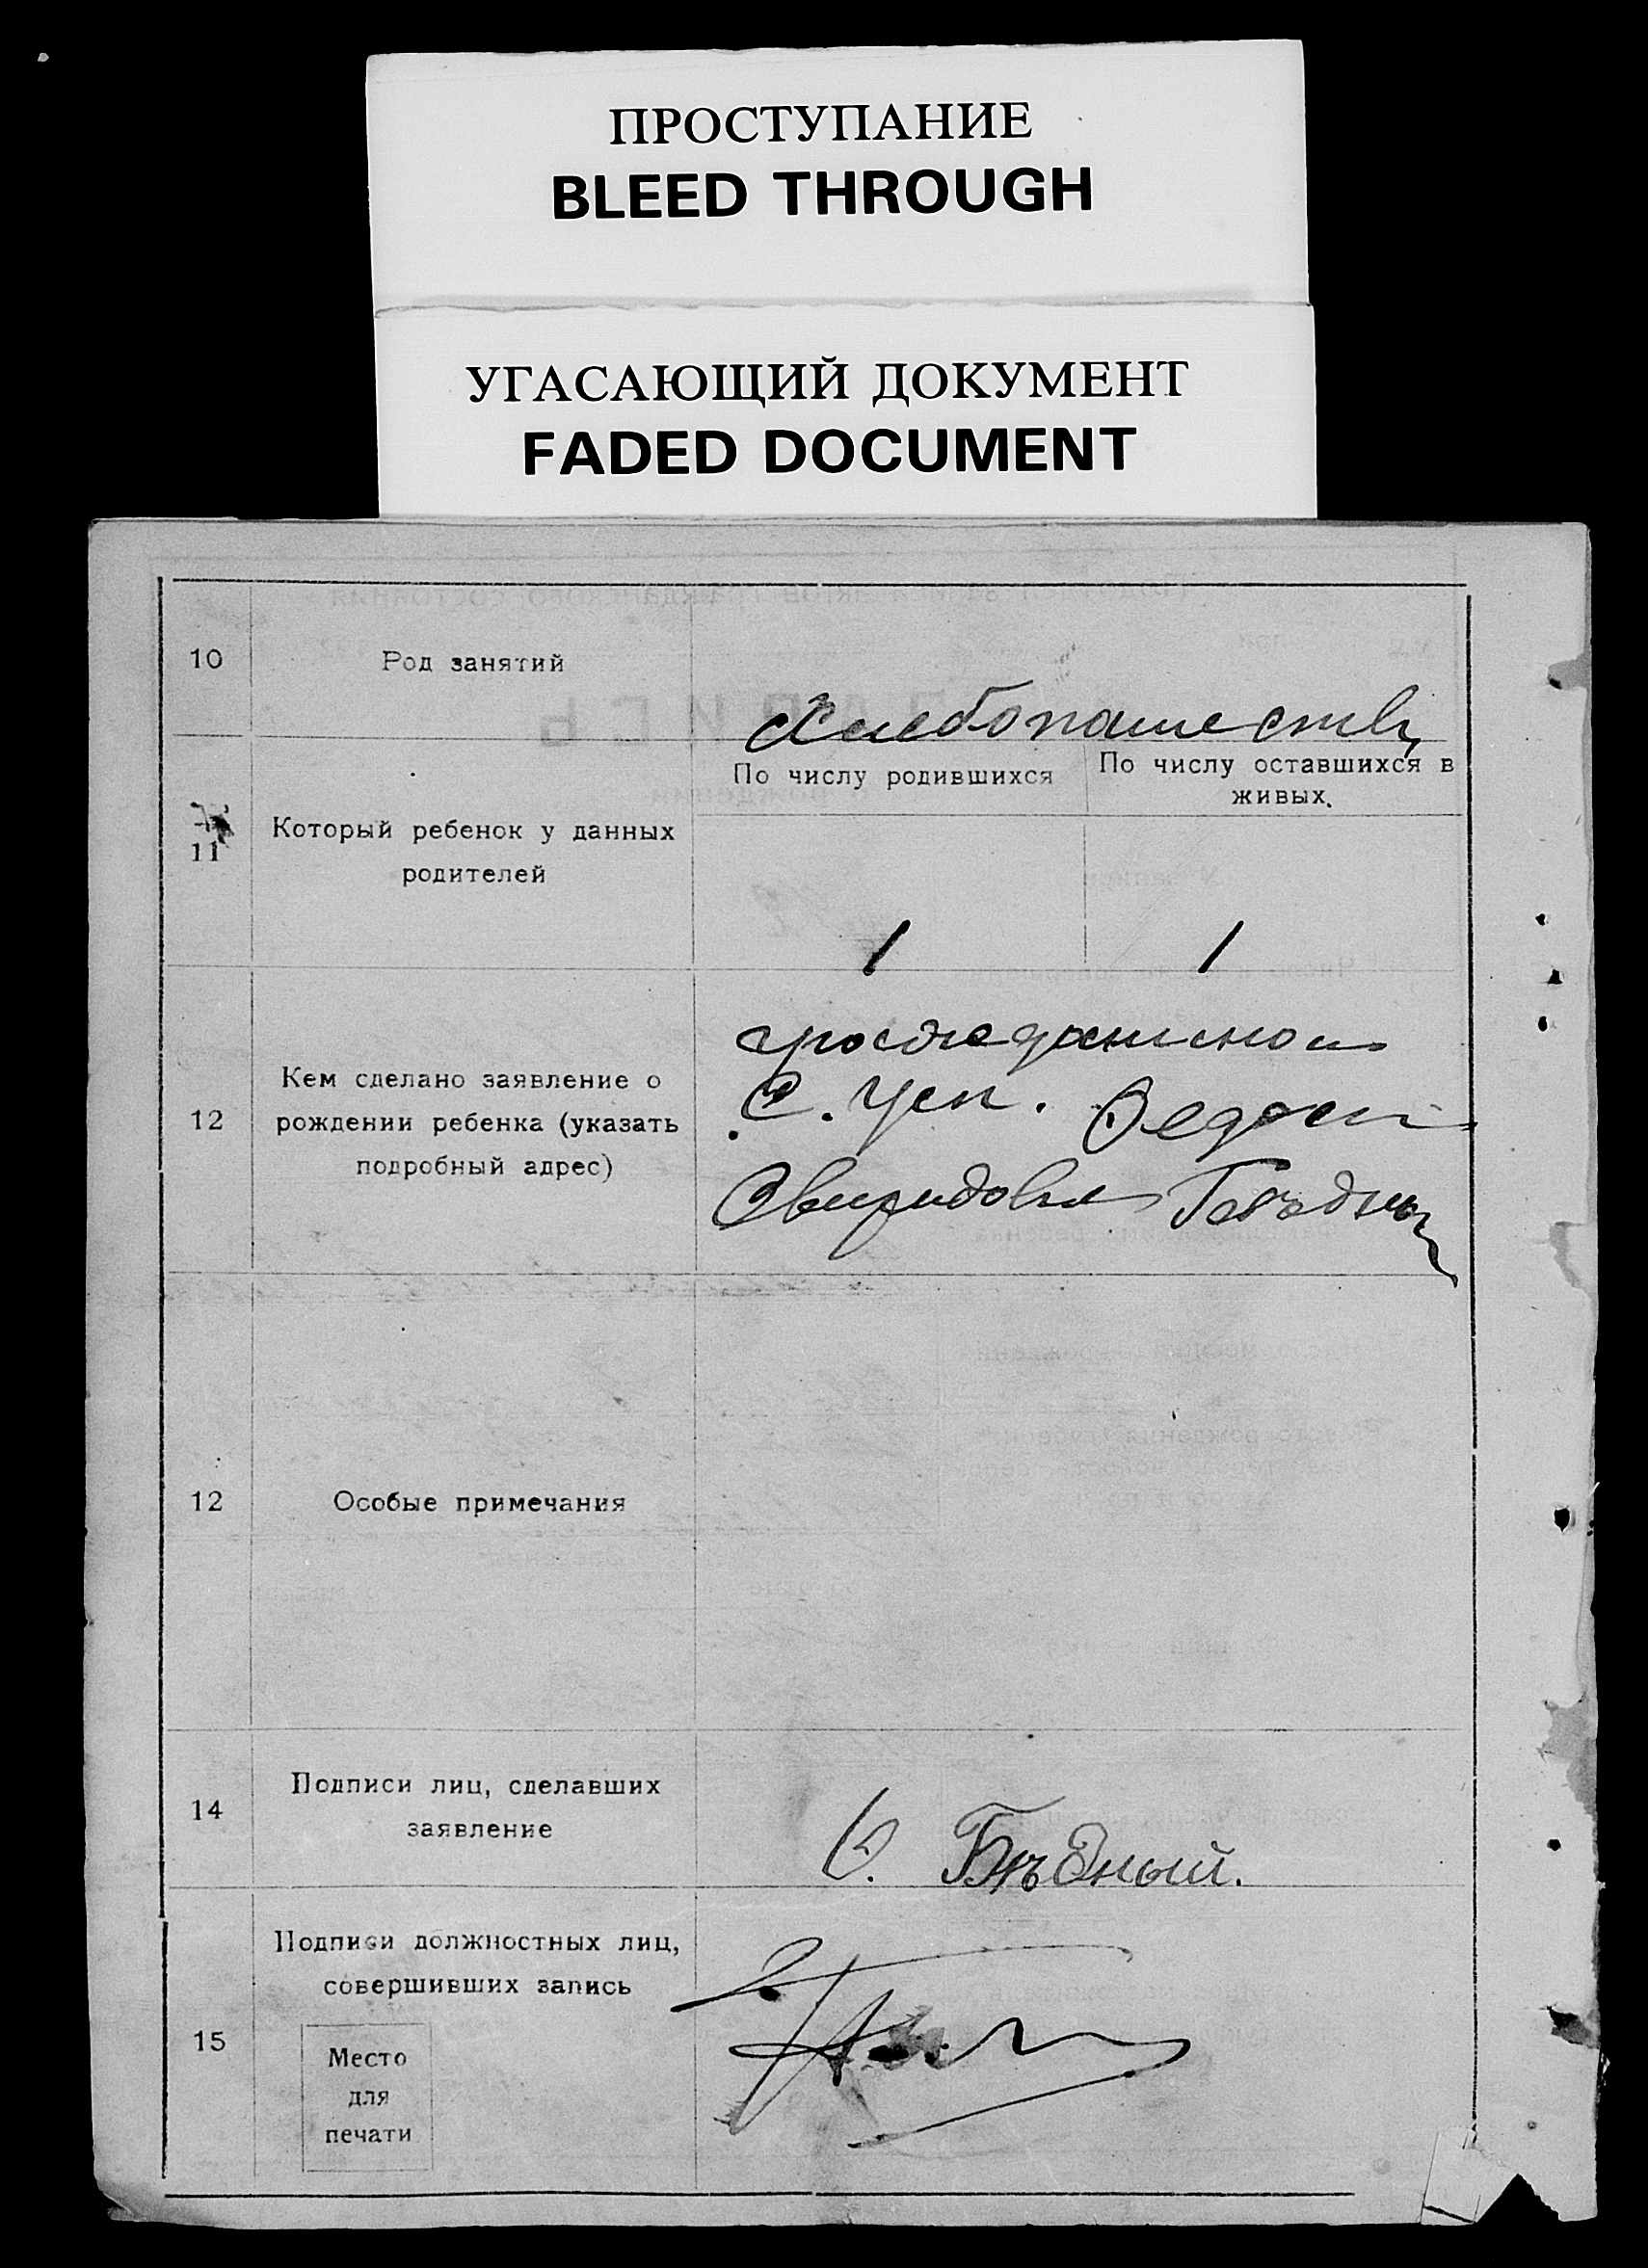 ПРОСТУПАНИЕ
BLEED THROUGH
УГАСАЮЩИЙ ДОКУМЕНТ
FADED DOCUMENT
10
Род занятий
Хлебопашеств
11
Который ребенок у данных
родителей
По числу родившихся
По числу оставшихся в
живых.
1
1
12
Кем сделано заявление о
рождении ребенка (указать
подробный адрес)
гражданином
С. Усп.
Свиридовы
12
Особые примечания
14
Подписи лиц, сделавших
заявление
Бѣдный.
15
Подписи должностных лиц,
совершивших запись
Место
для
печати